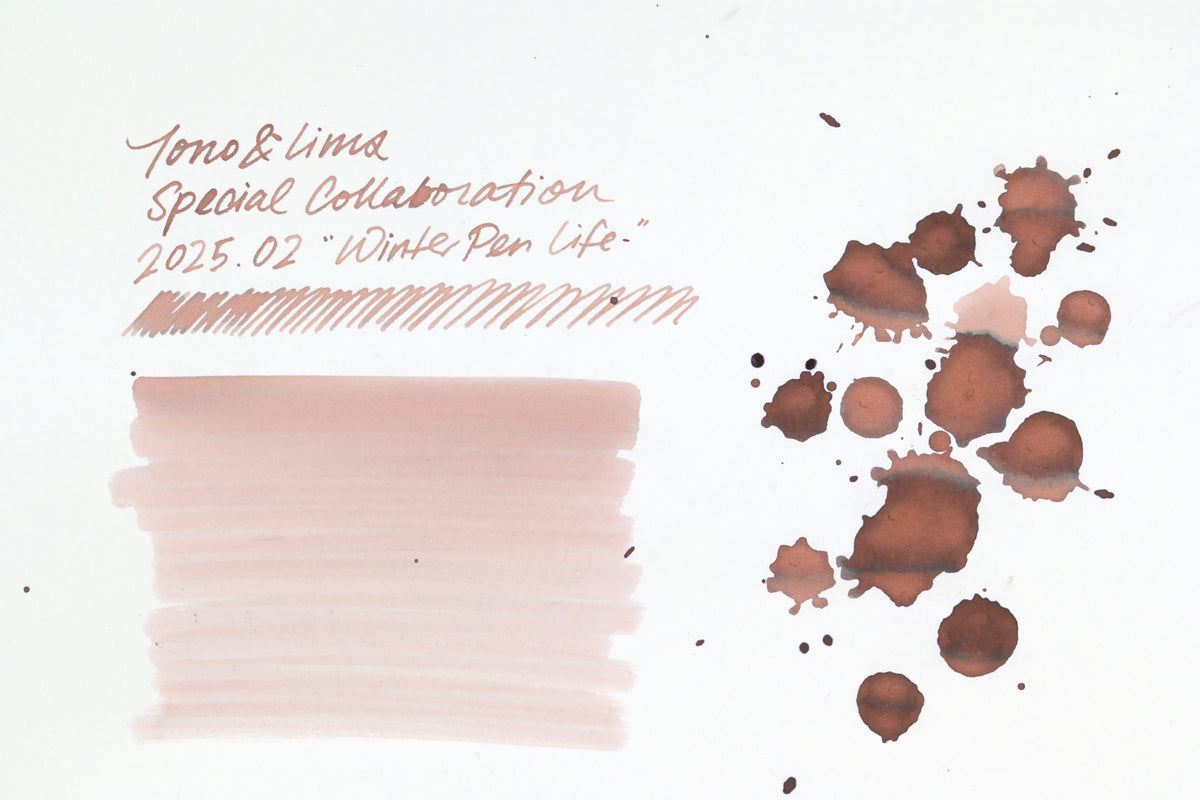 Tono & Lima
Special Collaboration
2025.02 "Winter Pen Life"